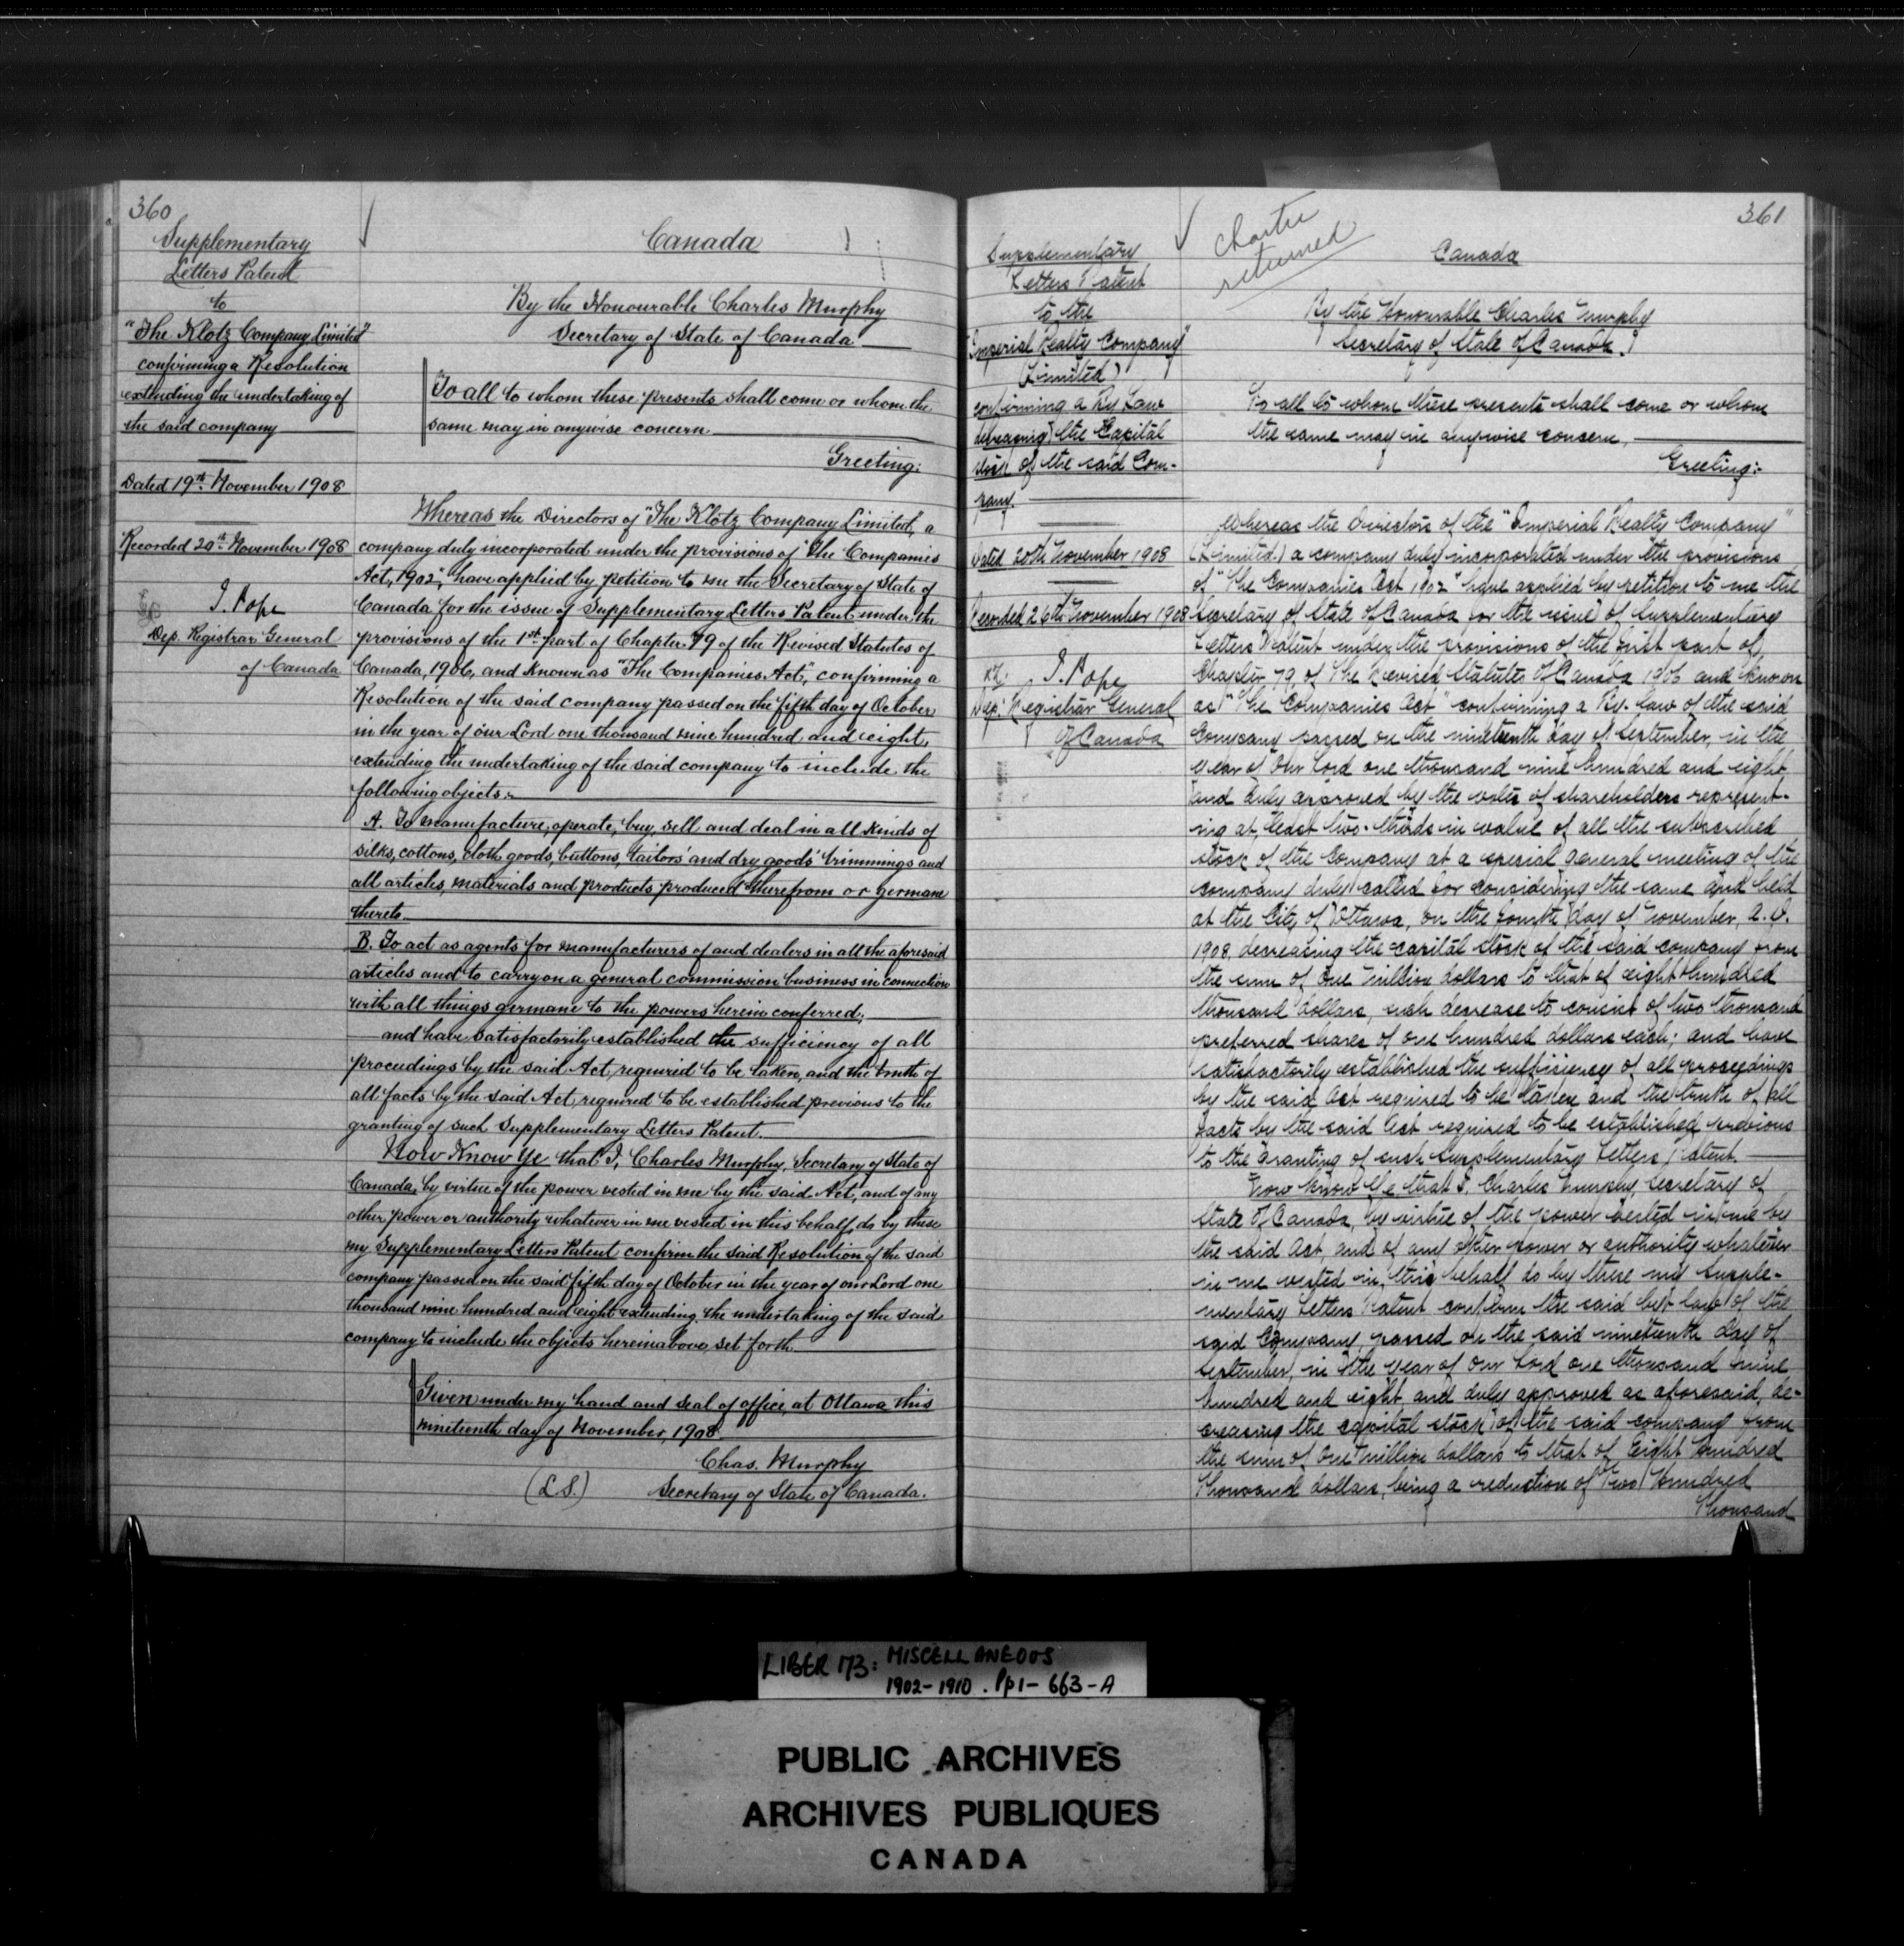 360
Supplementary
Letters Patent
to
"The Klotz Company Limited"
confirming a Resolution
extending the undertaking of
the said company
Dated 19th November 1908
Recorded 20th November 1908
J. Pope
Dep. Registrar General
of Canada
Canada
By the Honourable Charles Murphy
Secretary of State of Canada
To all to whom these presents shall come or whom the
same may in anywise concern
Greeting:
Whereas the Directors of "The Klotz Company Limited, a
company duly incorporated under the provisions of "The Companies
Act, 1902", have applied by petition to me the Secretary of State of
Canada for the issue of Supplementary Letters Patent under the
provisions of the 1st part of Chapter 79 of the Revised Statutes of
Canada, 1906, and known as "The Companies Act", confirming a
Resolution of the said company passed on the fifth day of October
in the year of our Lord one thousand nine hundred and eight,
extending the undertaking of the said company to include the
following objects:-
A. To manufacture, operate, buy, sell and deal in all kinds of
silks, cottons, cloth goods, buttons, tailors' and dry goods' trimmings and
all articles, materials and products produced therefrom or germane
thereto.
B. To act as agents for manufacturers of and dealers in all the aforesaid
articles and to carry on a general commission business in connection
with all things germane to the powers herein conferred;
and have satisfactorily established the sufficiency of all
proceedings by the said Act, required to be taken, and the truth of
all facts by the said Act, required to be established previous to the
granting of such Supplementary Letters Patent.
Now Know Ye that I, Charles Murphy, Secretary of State of
Canada, by virtue of the power vested in me by the said Act, and of any
other power or authority whatever in me vested in this behalf, do by these
my Supplementary Letters Patent confirm the said Resolution of the said
company passed on the said fifth day of October in the year of our Lord one
thousand nine hundred and eight extending the undertaking of the said
company to include the objects hereinabove set forth
Given under my hand and seal of office, at Ottawa this
nineteenth day of November, 1908.
Chas. Murphy
(L.S.) Secretary of State of Canada.
361
charter
returned
Supplementary
Letters Patent
to the
Imperial Realty Company"
(Limited)
confirming a By Law
decreasing the Capital
stock of the said Com-
pany.
Dated 20th November 1908
Recorded 26th November 1908
J. Pope
Dep. Registrar General
of Canada
Canada
By the Honourable Charles Murphy
Secretary of State of Canada.
To all to whom these presents shall come or whom
the same may in anywise concern,
Greeting:-
Whereas the Directors of the "Imperial Realty Company"
(Limited) a company duly incorporated under the provisions
of "The Companies Act 1902" have applied by petition to me the
Secretary of State of Canada for the issue of Supplementary
Letters Patent under the provisions of the first part of
Chapter 79 of The Revised Statutes of Canada 1906 and known
as "The Companies Act" confirming a By-law of the said
Company passed on the nineteenth day of September, in the
year of Our Lord one thousand nine hundred and eight,
and duly approved by the votes of shareholders represent-
ing at least two-thirds in value of all the subscribed
stock of the Company at a special general meeting of the
company duly called for considering the same and held
at the City of Ottawa, on the fourth day of November, A.D.
1908, decreasing the capital stock of the said company from
the sum of One million dollars to that of eight hundred
thousand dollars, such decrease to consist of two thousand
preferred shares of one hundred dollars each; and have
satisfactorily established the sufficiency of all proceedings
by the said Act required to be taken and the truth of all
facts by the said Act required to be established previous
to the granting of such Supplementary Letters Patent.
Now Know Ye that I, Charles Murphy, Secretary of
State of Canada, by virtue of the power vested in me by
the said Act and of any other power or authority whatever
in me vested in this behalf do by these my Supple-
mentary Letters Patent confirm the said by-law of the
said Company passed on the said nineteenth day of
September, in the year of Our Lord one thousand nine
hundred and eight, and duly approved as aforesaid, de-
creasing the capital stock of the said company from
the sum of One million dollars to that of Eight Hundred
Thousand dollars, being a reduction of Two Hundred
Thousand
LIBER 173: MISCELLANEOUS
1902-1910. Pp1-663-A
PUBLIC ARCHIVES
ARCHIVES PUBLIQUES
CANADA